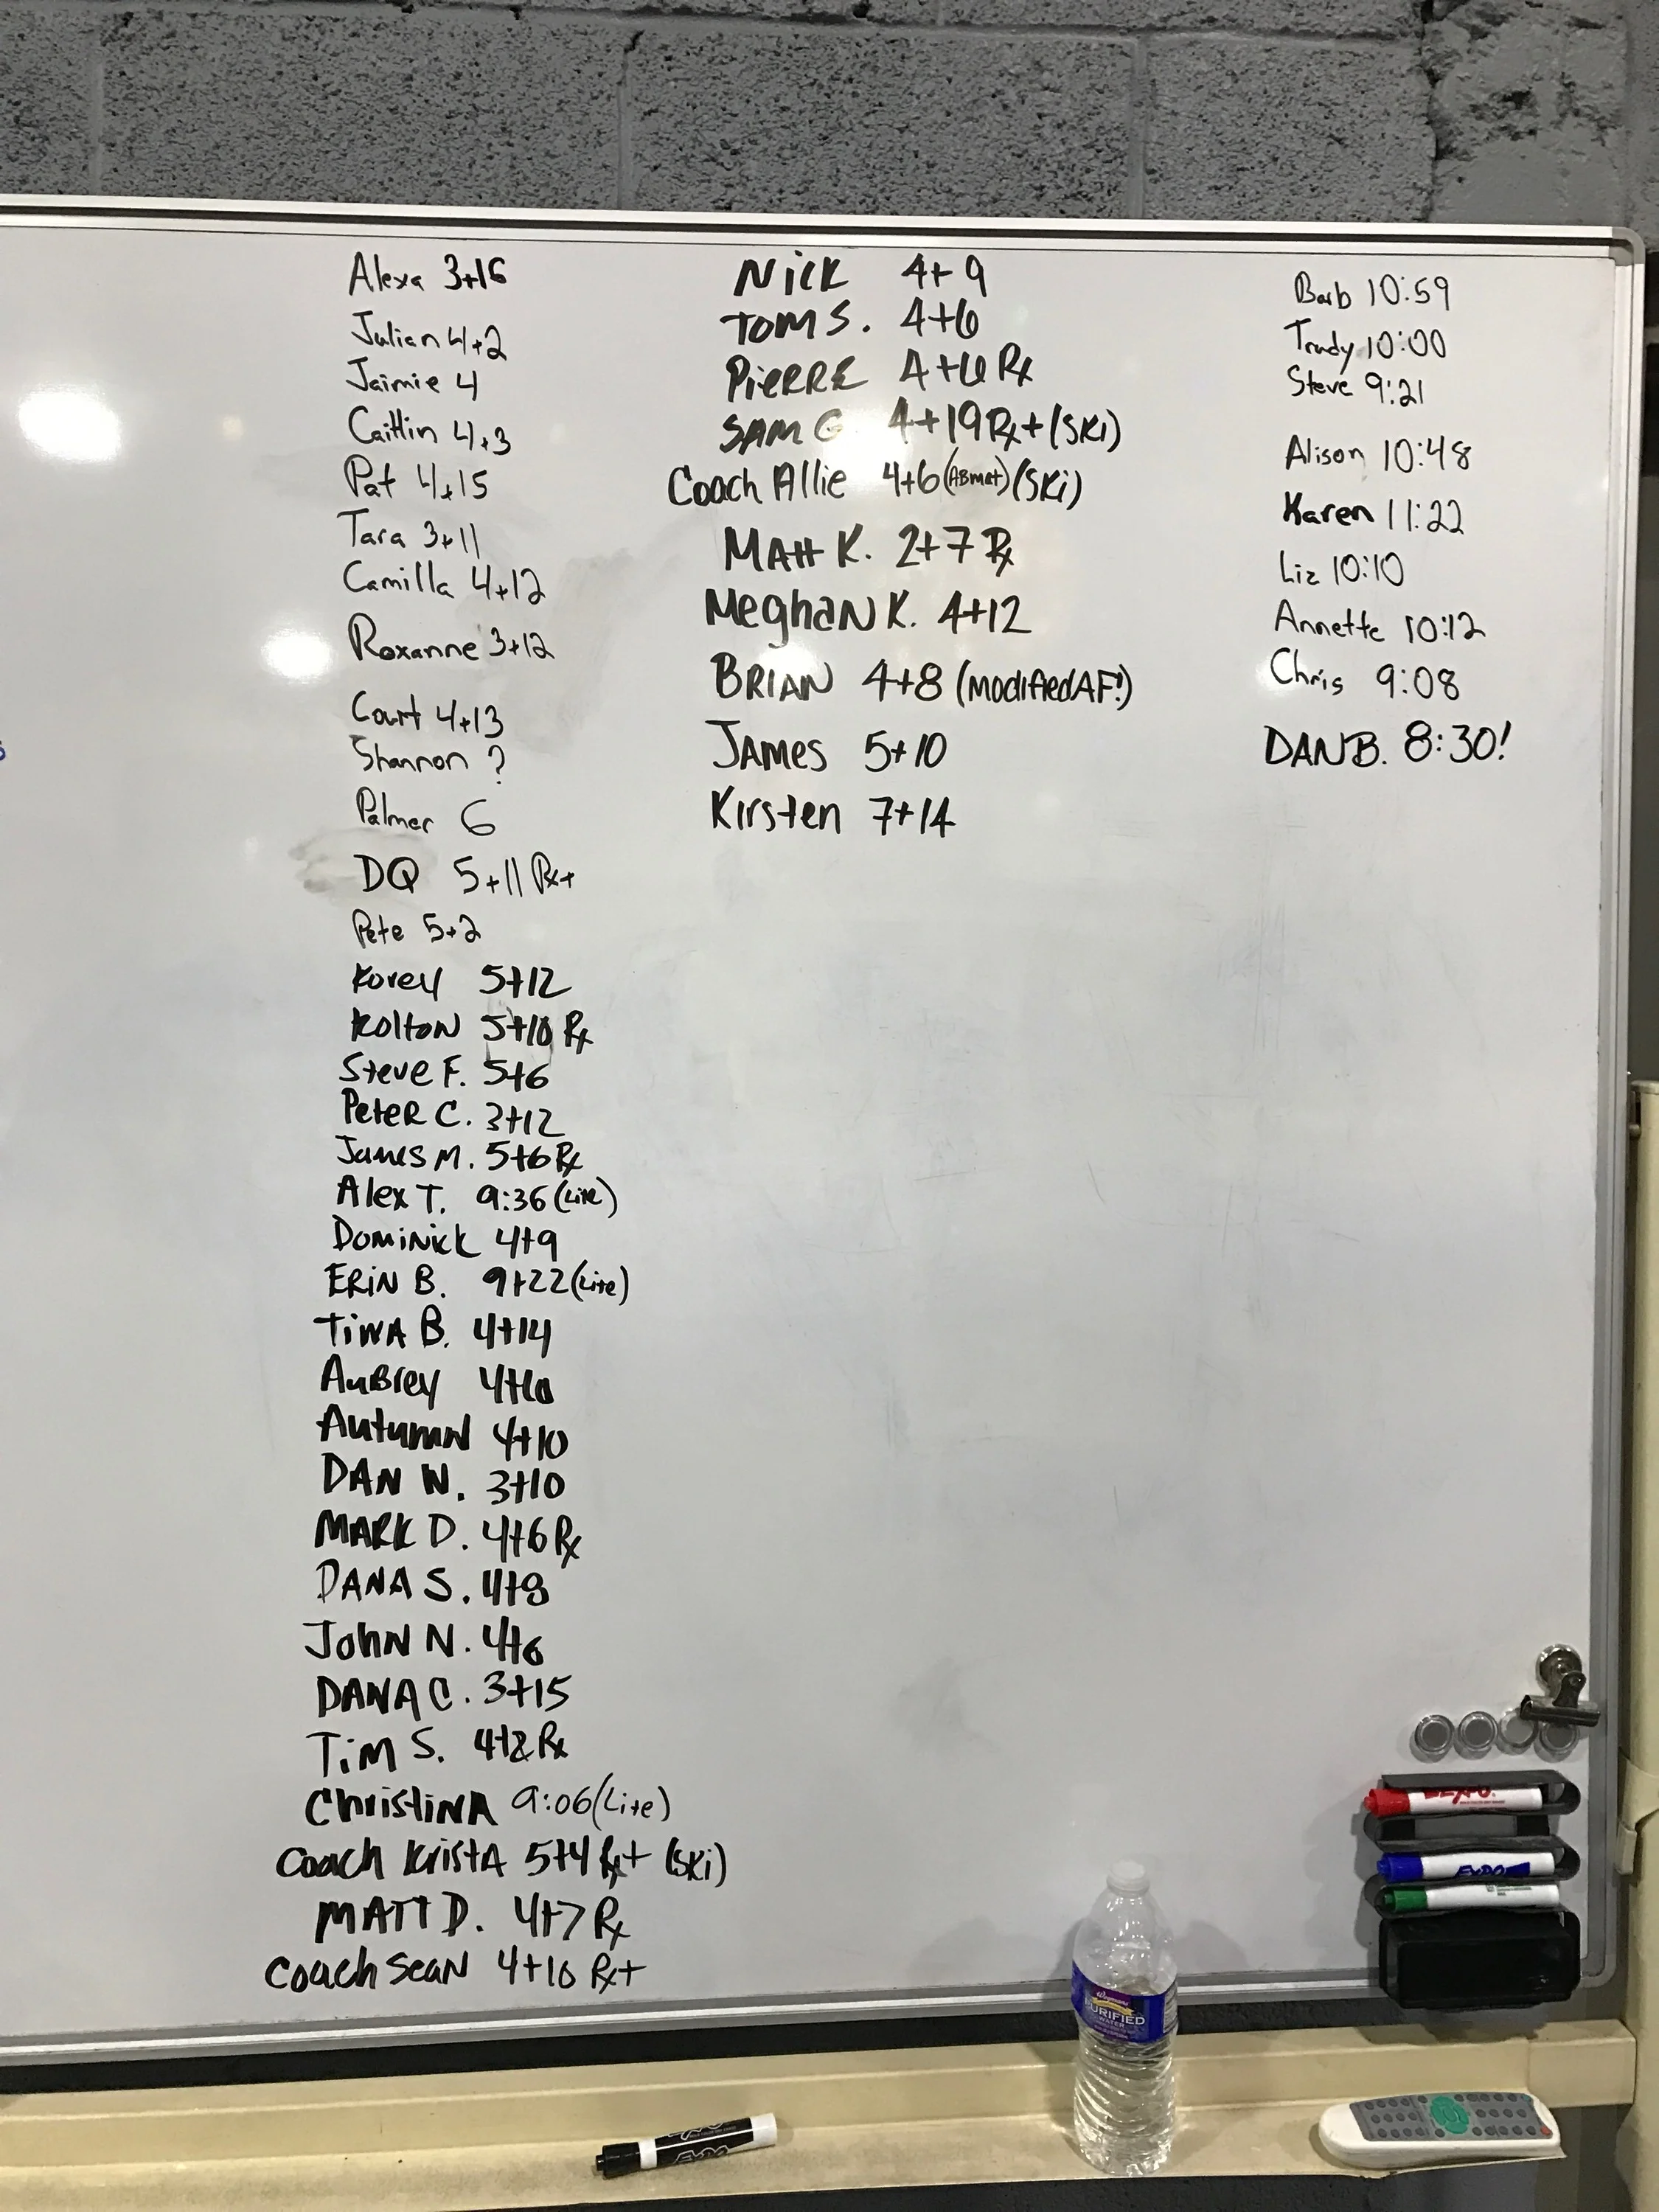 Alexa 3+16
Julian 4+2
Jaimie 4
Caitlin 4+3
Pat 4+15
Tara 3+11
Camilla 4+12
Roxanne 3+12
Court 4+13
Shannon ?
Palmer 6
DQ 5+11 Rx+
Pete 5+2
Korey 5+12
Kolton 5+10 Rx
Steve F. 5+6
Peter C. 3+12
James M. 5+6 Rx
Alex T. 9:36 (Lite)
Dominick 4+9
Erin B. 9+22 (Lite)
Tina B. 4+14
Aubrey
Autumn 4+10
Dan W. 3+10
Mark D. 4+6 Rx
Dana S. 4+8
John N. 4+6
Dana C. 3+15
Tim S. Rx
Christina 9:06 (Lite)
Coach Krista 5+4 Rx+ (Ski)
Matt D. 4+7 Rx
Coach Sean 4+10 Rx+
Nick 4+9
Tom S. 4+6
Pierre 4+6 Rx
Sam G 4+19 Rx+ (Ski)
Coach Allie 4+6 (ABmat) (Ski)
Matt K. 2+7 Rx
Meghan K. 4+12
Brian 4+8 (modified AF!)
James 5+10
Kirsten 7+14
Barb 10:59
Trudy 10:00
Steve 9:21
Alison 10:48
Karen 11:22
Liz 10:10
Annette 10:12
Chris 9:08
Dan B. 8:30!
EXPO
EXPO
PURIFIED
WATER
EXPO